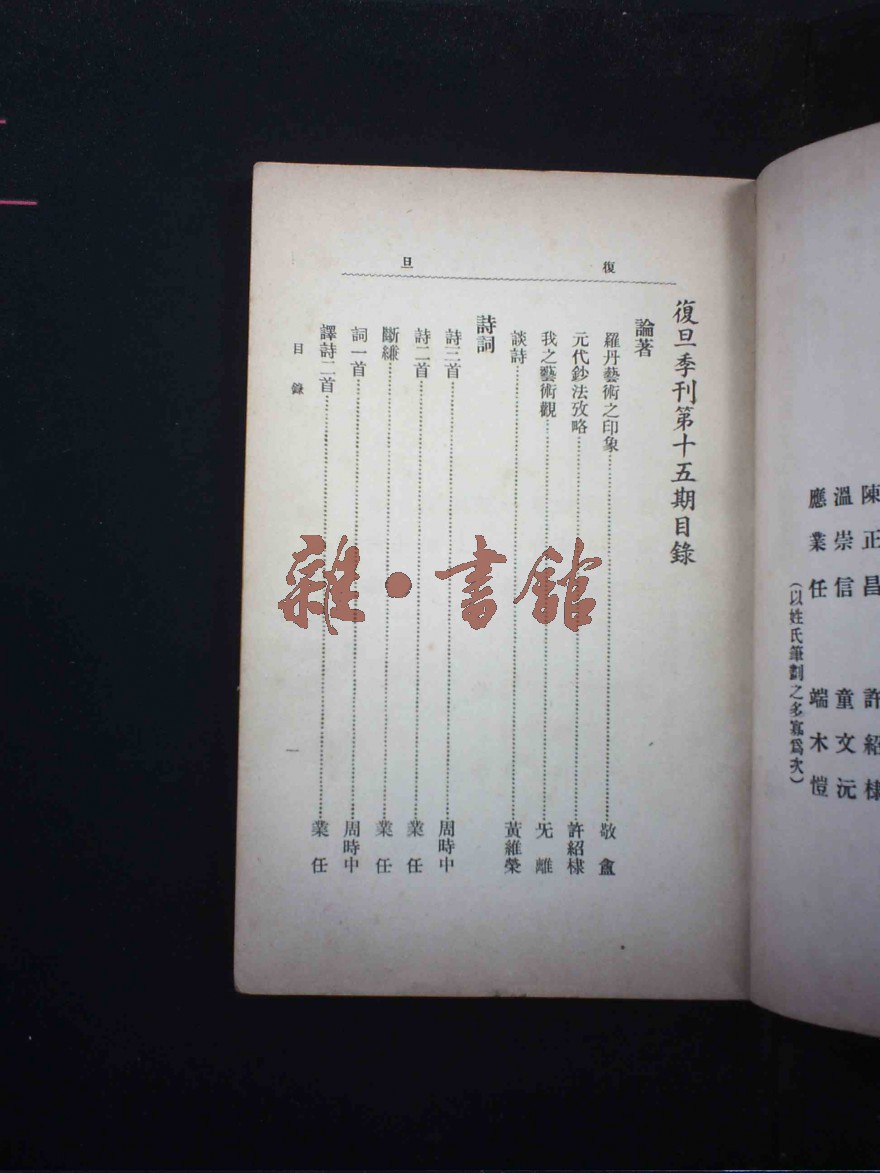 陳正昌　許紹棣
溫崇信　童文沅
應業任　端木愷
（以姓氏筆劃之多寡爲次）
復旦
復旦季刊第十五期目錄
論著
羅丹藝術之印象……敬盦
元代鈔法攷略……許紹棣
我之藝術觀……旡離
談詩……黃維榮
詩詞
詩三首……周時中
詩二首……業任
斷縑……業任
詞一首……周時中
譯詩二首……業任
目錄
一
雜·書館